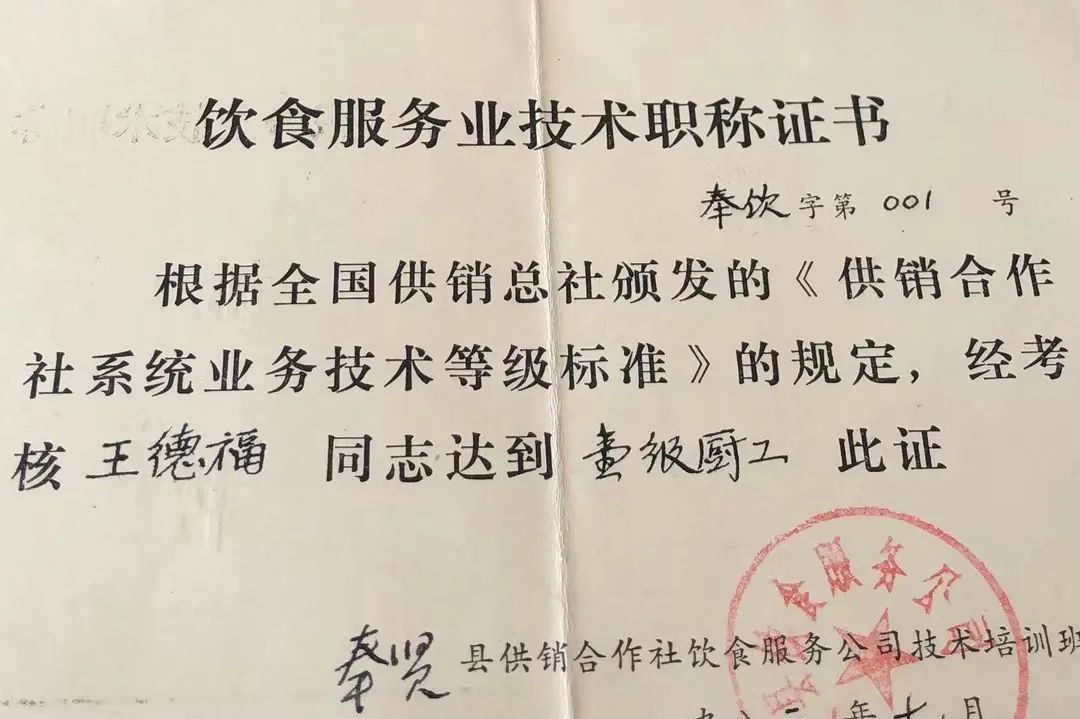 饮食服务业技术职称证书
奉饮字第 001 号
根据全国供销总社颁发的《供销合作
社系统业务技术等级标准》的规定，经考
核 王德福 同志达到 壹级厨工 此证
奉贤县供销合作社饮食服务公司技术培训班